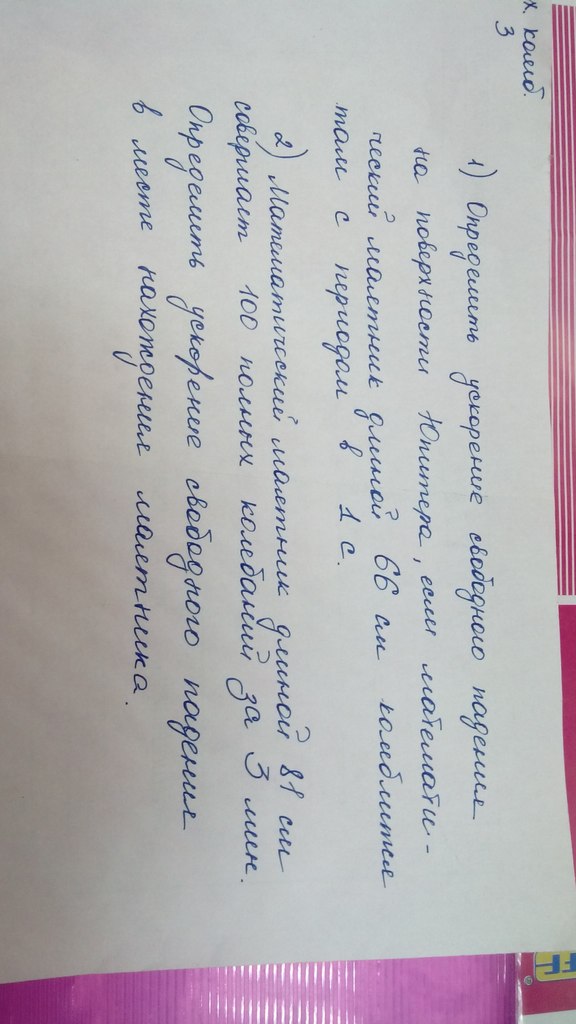 х. колеб.
3
1) Определить ускорение свободного падения
на поверхности Юпитера, если математи-
ческий маятник длиной 66 см колеблится
там с периодом в 1 с.
2) Математический маятник длиной 81 см
совершает 100 полных колебаний за 3 мин.
Определить ускорение свободного падения
в месте нахождения маятника.
FF